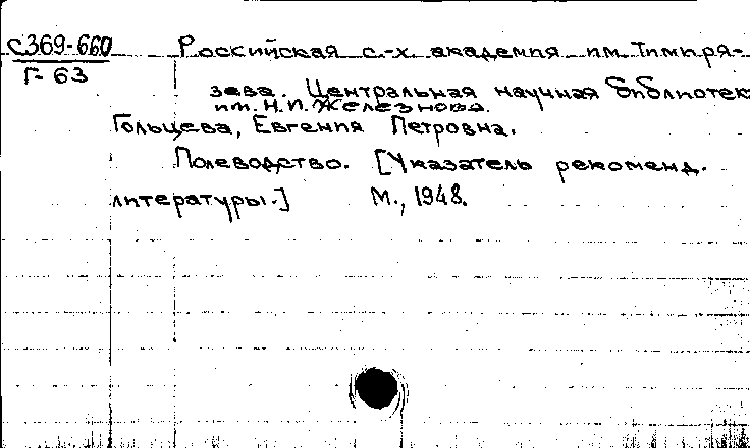 с369-660
Г-63
Российская с.-х. академия им. Тимиря-
зева. Центральная научная библиотек
им. Н.И. Железнова.
Гольцева, Евгения Петровна.
Полеводство. [Указатель рекоменд.
литературы.] М., 1948.